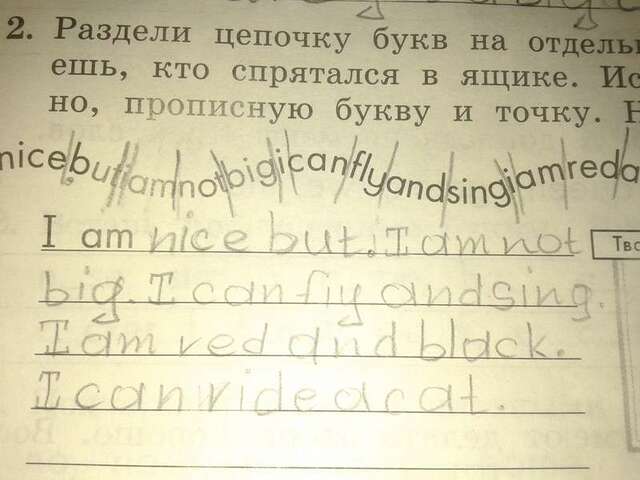 2. Раздели цепочку букв на отдель
ешь, кто спрятался в ящике. Ис
но, прописную букву и точку. Н
nicebutiamnotbigicanflyandsingiamreda
I am nice but. I am not
Тво
big. I can fiy and sing.
I am red and black.
I can ride a cat.